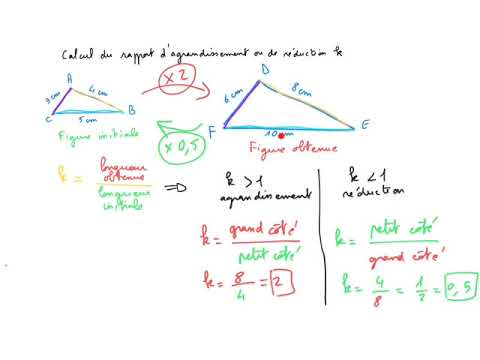 Calcul du rapport d'agrandissement ou de réduction k
A
3cm
4cm
C
5cm
B
Figure initiale
x 2
x 0,5
D
6cm
8cm
F
10cm
E
Figure obtenue
k = longueur obtenue / longueur initiale =D
k > 1
agrandissement
k = grand côté / petit côté
k = 8/4 = 2
k < 1
réduction
k = petit côté / grand côté
k = 4/8 = 1/2 = 0,5